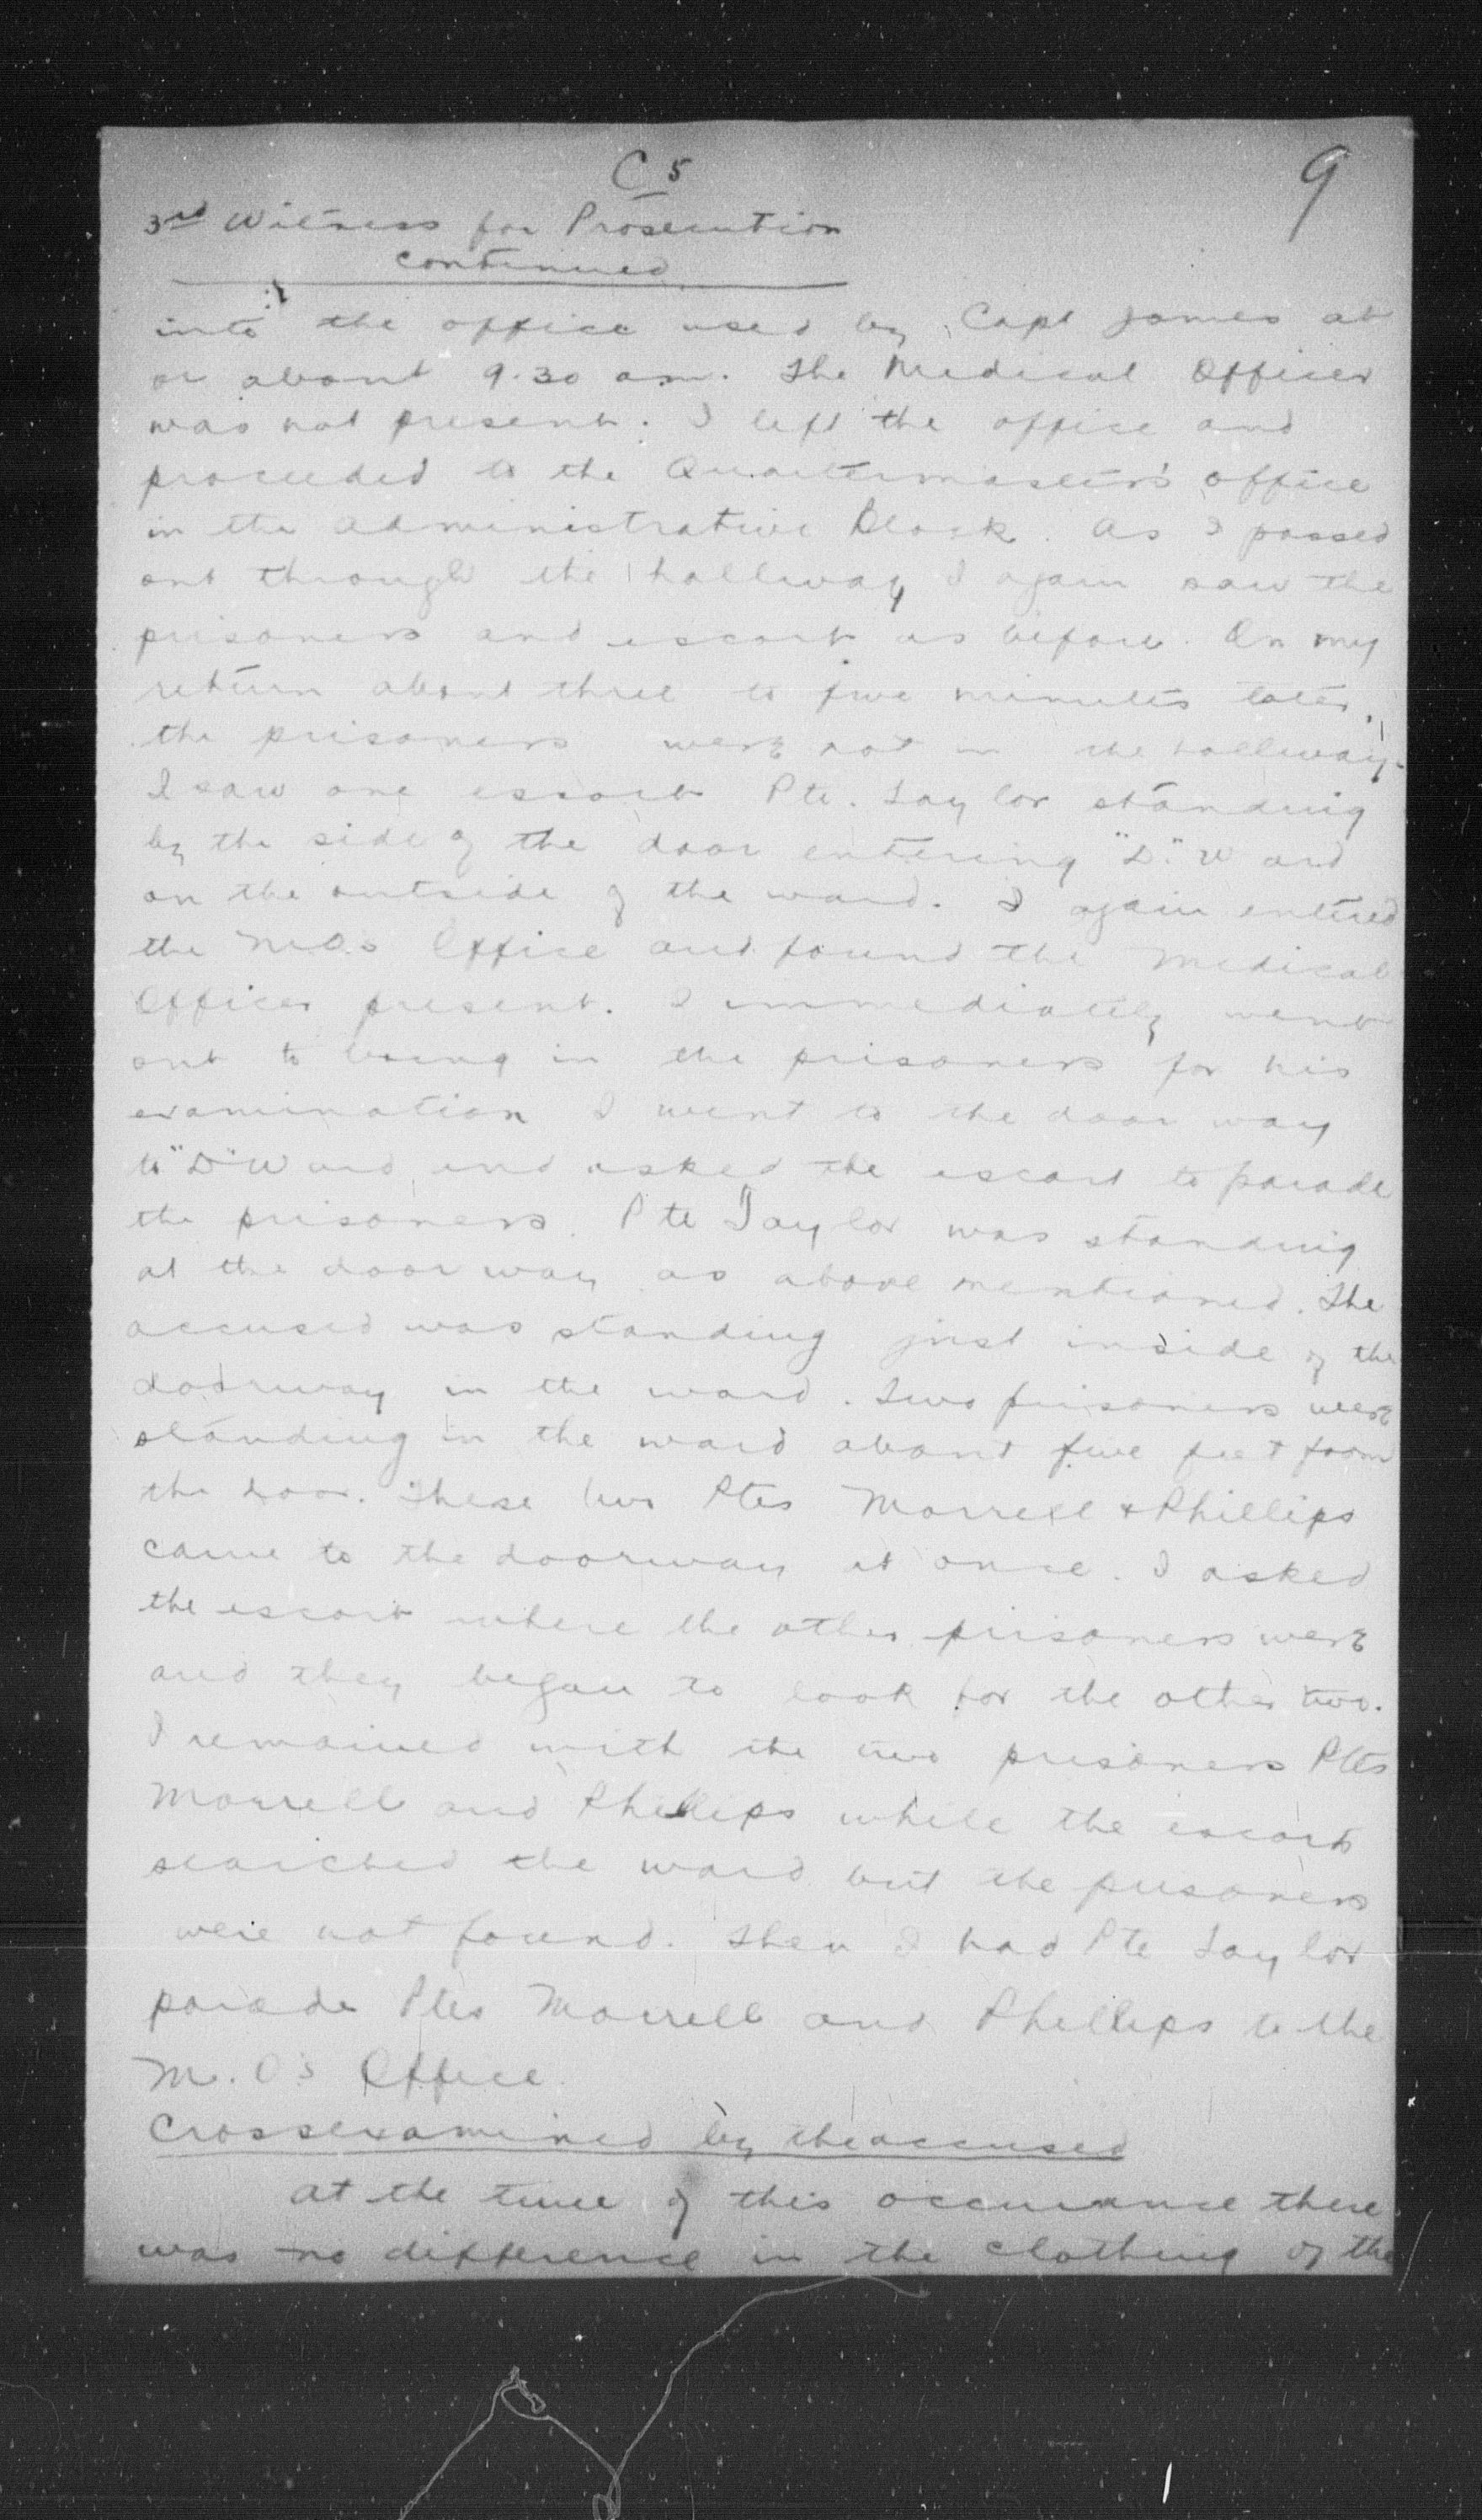 C 5
9
3rd Witness for Prosecution
continued
into the office used by Capt James at
or about 9.30 am. The Medical Officer
was not present. I left the office and
proceeded to the Quartermaster's office
in the Administrative Block. As I passed
out through the hallway I again saw the
prisoners and escort as before. On my
return about three to five minutes later,
the prisoners were not in the hallway.
I saw one escort Pte. Taylor standing
by the side of the door entering "D." Ward
on the outside of the ward. I again entered
the M.O.s Office and found the Medical
Officer present. I immediately went
out to bring in the prisoners for his
examination I went to the door way
to "D" Ward and asked the escort to parade
the prisoners. Pte Taylor was standing
at the door way as above mentioned. The
accused was standing just inside of the
doorway in the ward. Two prisoners were
standing in the ward about five feet from
the door. These two Ptes Morrell & Phillips
came to the doorway at once. I asked
the escort where the other prisoners were
and they began to look for the other two.
I remained with the two prisoners Ptes
Morrell and Phillips while the escort
searched the ward but the prisoners
were not found. Then I had Pte Taylor
parade Ptes Morrell and Phillips to the
M.O's Office.
Crossexamined by the accused
At the time of this occurance there
was no difference in the clothing of the